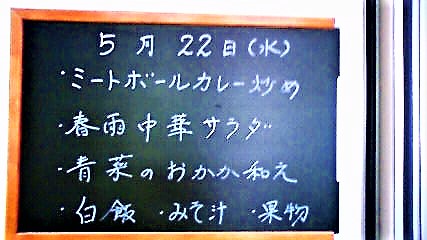 5月22日(水)
・ミートボールカレー炒め
・春雨中華サラダ
・青菜のおかか和え
・白飯 ・みそ汁 ・果物